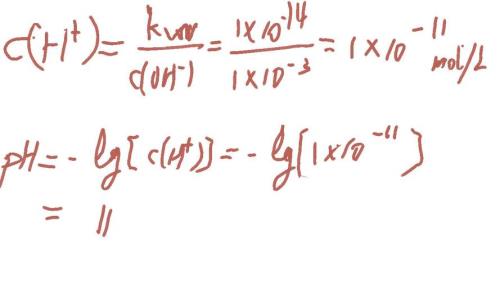 c(H⁺) = kw/c(OH⁻) = 1×10⁻¹⁴/1×10⁻³ = 1×10⁻¹¹ mol/L
pH = - lg[c(H⁺)] = - lg[1×10⁻¹¹]
= 11